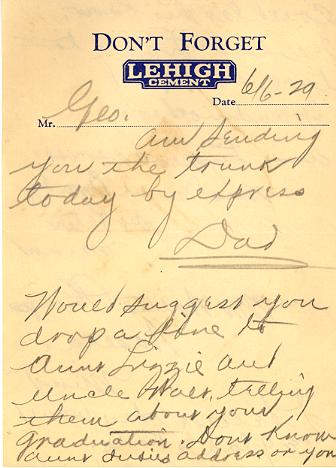 DON'T FORGET
LEHIGH
CEMENT
Date 6/6-29
Mr. Geo.
am sending
you the trunk
today by express
Dad
Would suggest you
drop a line to
Aunt Lizzie and
Uncle Walt, telling
them about your
graduation. Dont know
aunt Susies address or you